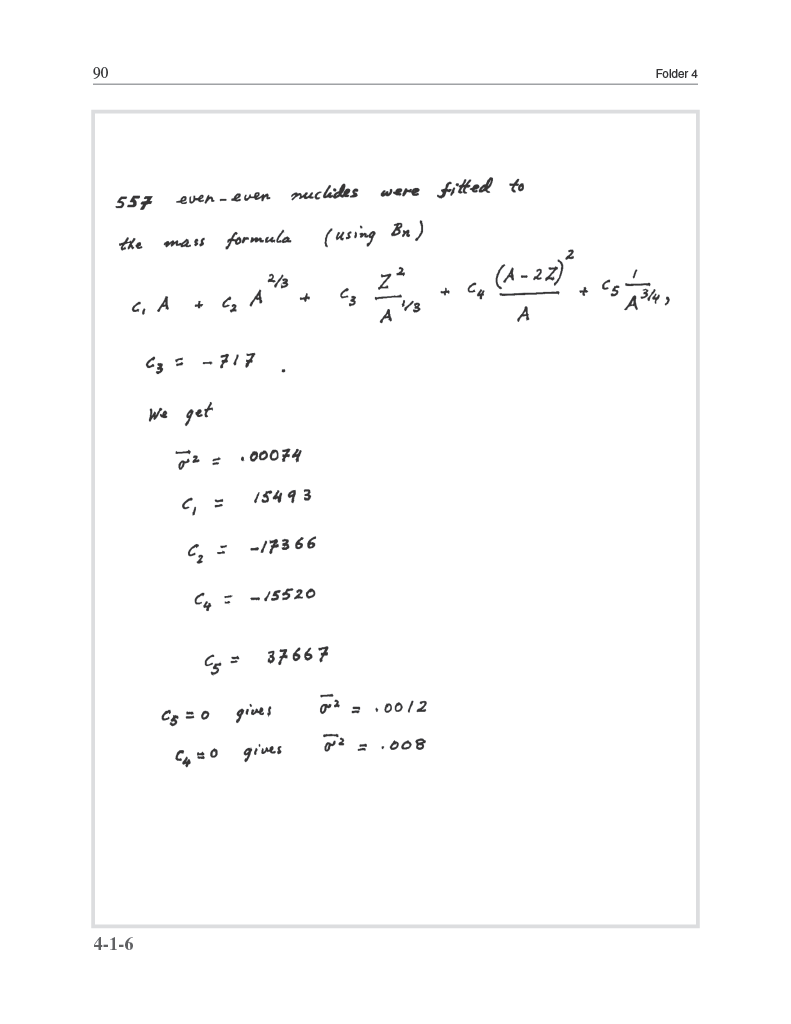 90 Folder 4
557 even-even nuclides were fitted to
the mass formula (using Bn)
c₁ A + c₂ A^2/3 + c₃ Z²/A^1/3 + c₄ (A-2Z)²/A + c₅ 1/A^3/4,
c₃ = -717 .
We get
σ̅² = .00074
c₁ = 15493
c₂ = -17366
c₄ = -15520
c₅ = 37667
c₅=0 gives σ̅² = .0012
c₄=0 gives σ̅² = .008
4-1-6